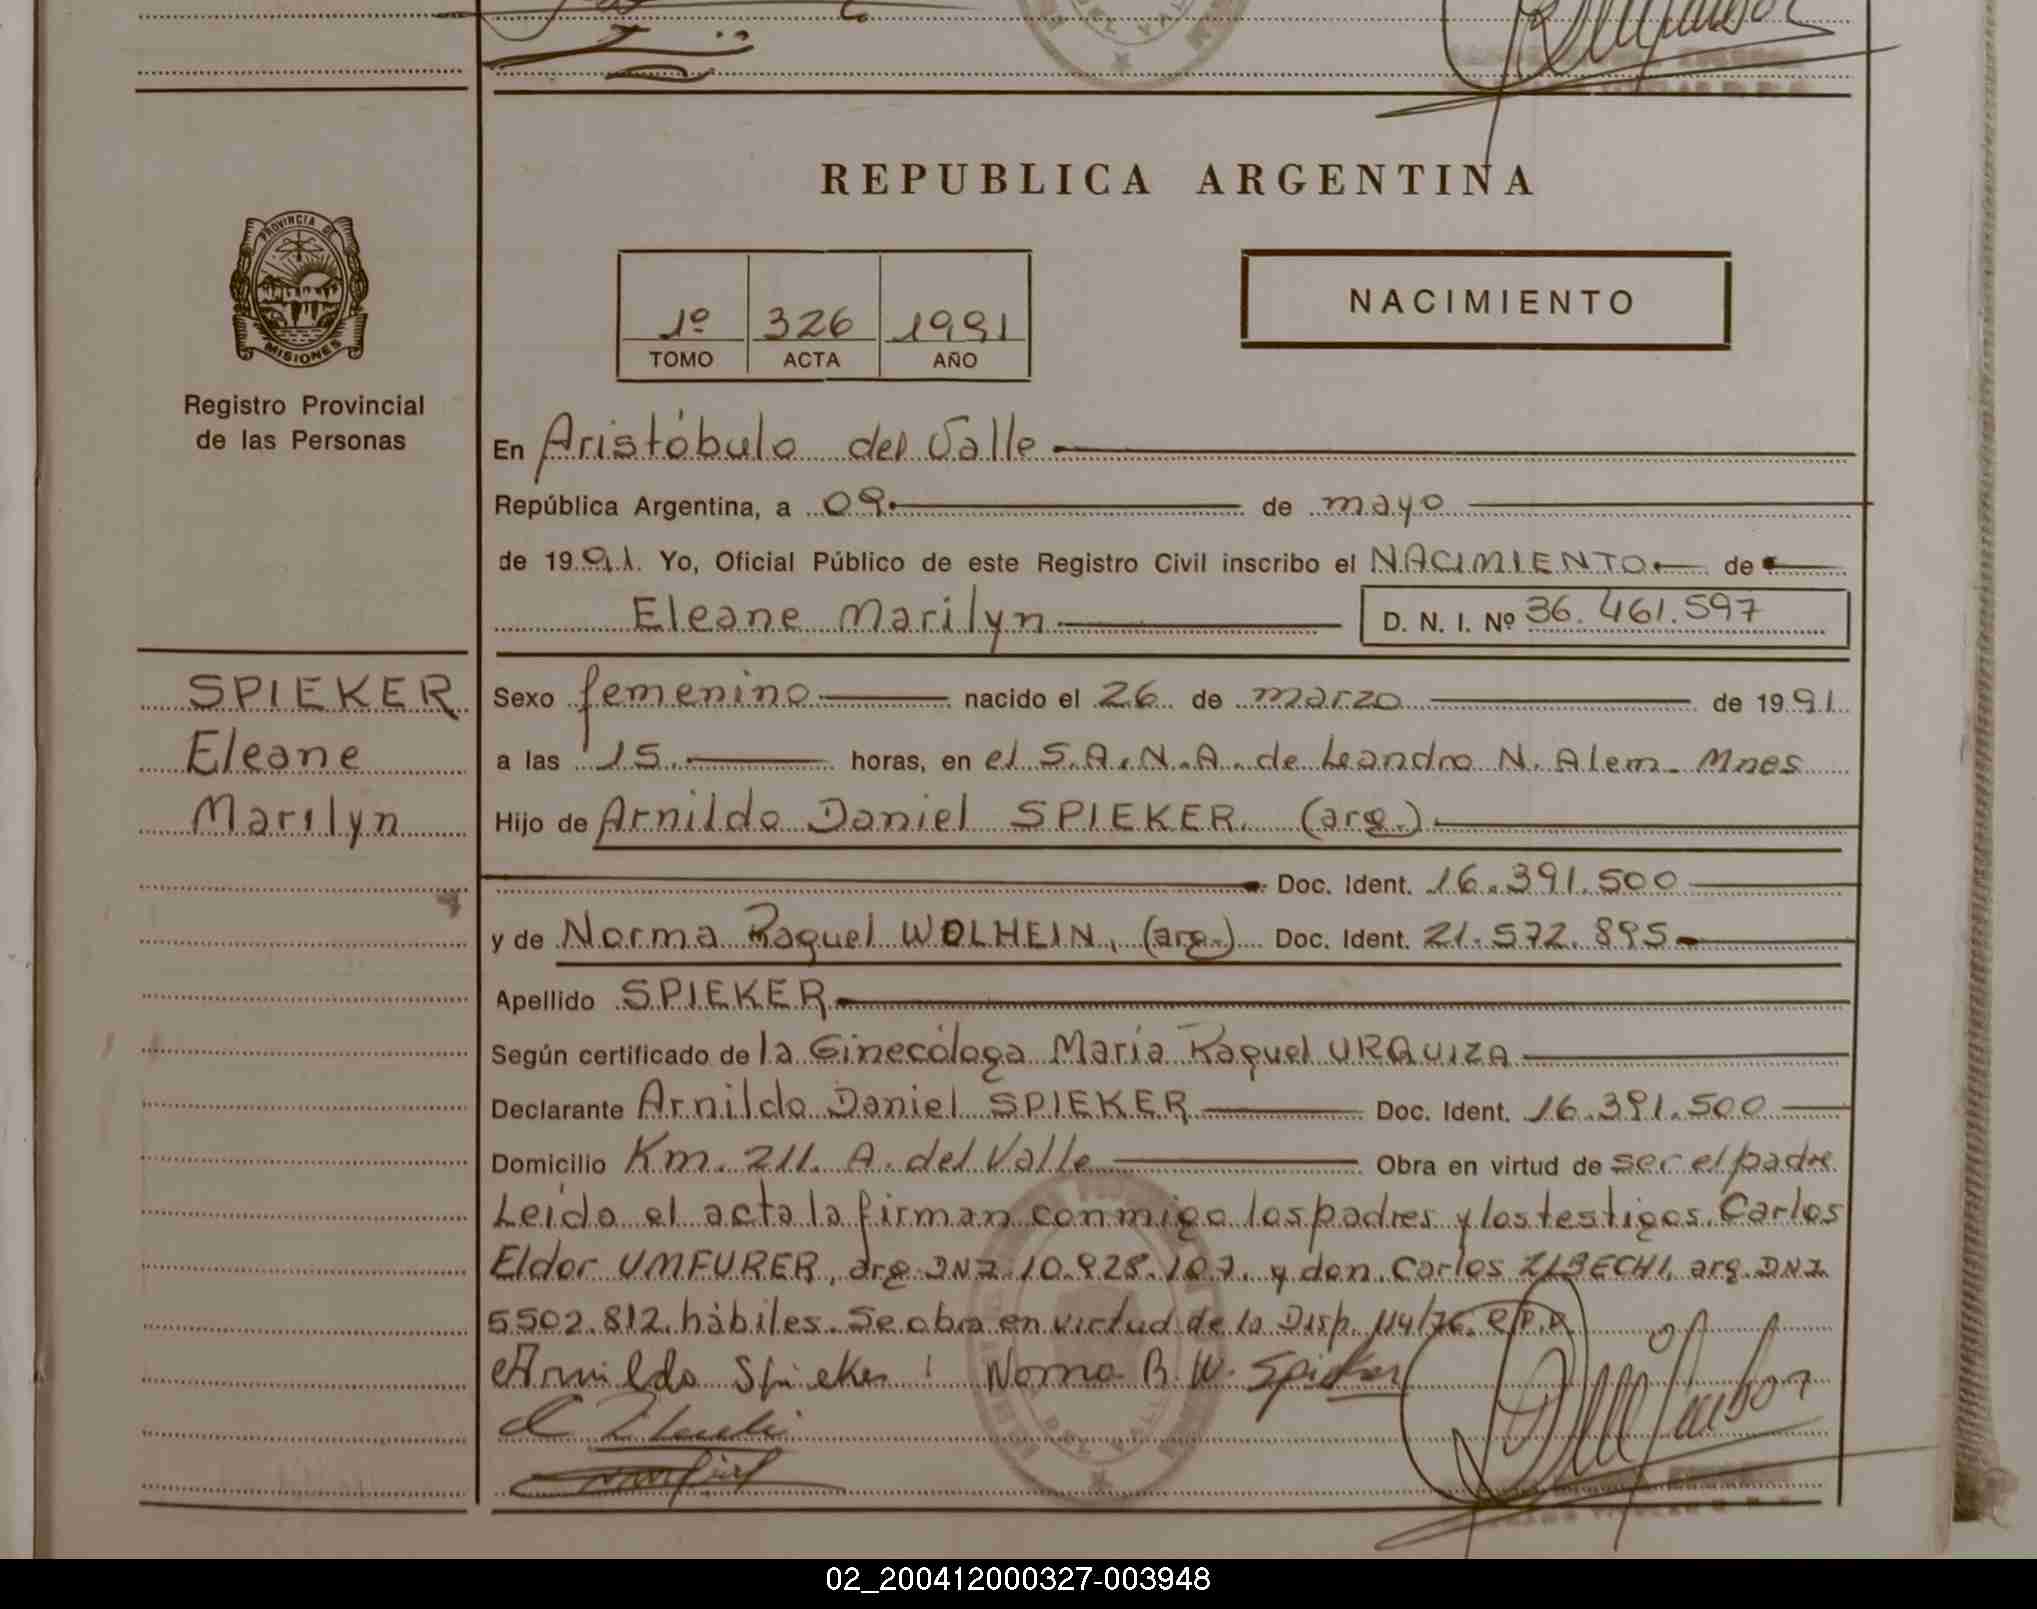 REPUBLICA ARGENTINA
PROVINCIA DE
MISIONES
Registro Provincial
de las Personas
1º 326 1991
TOMO ACTA AÑO
NACIMIENTO
En Aristóbulo del Valle
República Argentina, a 09 de mayo
de 1991. Yo, Oficial Público de este Registro Civil inscribo el NACIMIENTO de
Eleane Marilyn D. N. I. Nº 36.461.597
SPIEKER
Eleane
Marilyn
Sexo femenino nacido el 26 de marzo de 1991
a las 15 horas, en el S.A.N.A. de Leandro N. Alem. Mnes
Hijo de Arnildo Daniel SPIEKER (arg.)
Doc. Ident. 16.391.500
y de Norma Raquel WOLHEIN, (arg.) Doc. Ident. 21.572.895
Apellido SPIEKER
Según certificado de la Ginecóloga María Raquel URQUIZA
Declarante Arnildo Daniel SPIEKER Doc. Ident. 16.391.500
Domicilio Km. 211. A. del Valle Obra en virtud de ser el padre
Leído el acta la firman conmigo los padres y los testigos, Carlos
Eldor UMFURER, arg. DNI 10.928.107. y don Carlos ZIBECHI, arg. DNI
5502.812. hábiles. Se obra en virtud de la Disp. 114/76. R.P.P.
Arnildo Spieker Norma R. W. Spieker
02_200412000327-003948